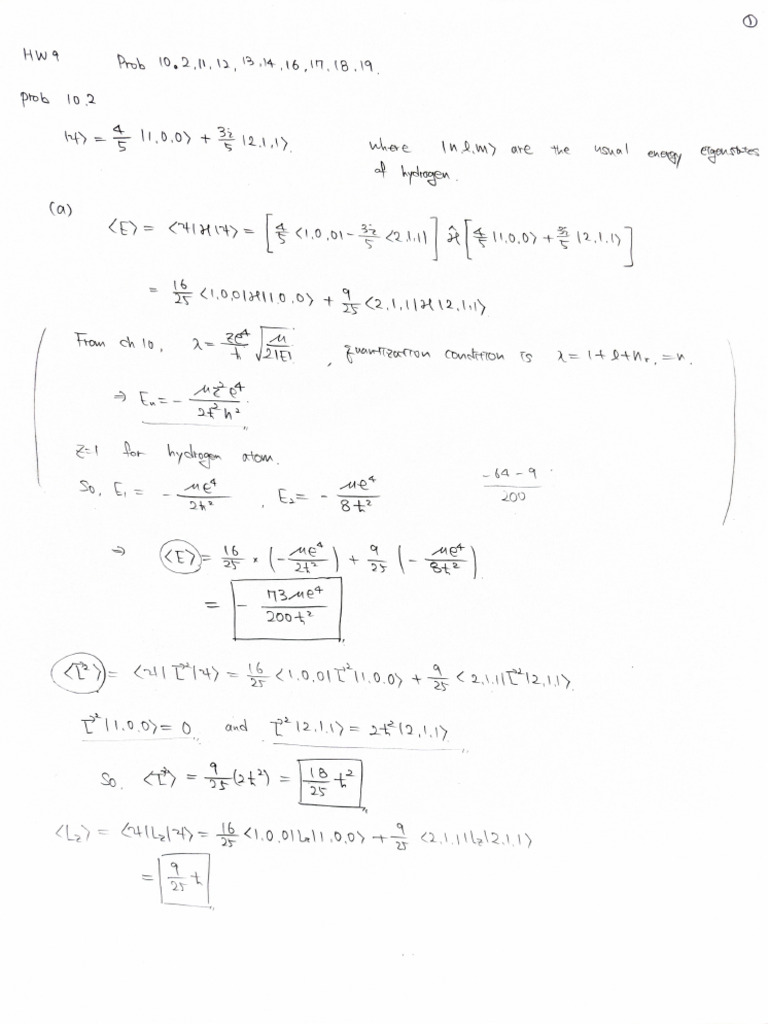 ①
HW 9 Prob 10.2, 11, 12, 13, 14, 16, 17, 18, 19.
prob 10.2
|ψ> = 4/5 |1,0,0> + 3i/5 |2,1,1>. where |n,l,m> are the usual energy eigenstates
of hydrogen.
(a)
<E> = <ψ|Ĥ|ψ> = [4/5 <1,0,0| - 3i/5 <2,1,1|] Ĥ [4/5 |1,0,0> + 3i/5 |2,1,1>]
= 16/25 <1,0,0|Ĥ|1,0,0> + 9/25 <2,1,1|Ĥ|2,1,1>
From ch 10, λ = ze⁴/ħ √(μ/2|E|) , quantization condition is λ = 1 + l + nᵣ = n.
⇒ Eₙ = - μz²e⁴/2ħ²n²
z=1 for hydrogen atom.
So, E₁ = - μe⁴/2ħ² , E₂ = - μe⁴/8ħ² -64-9/200
⇒ <E> = 16/25 × (- μe⁴/2ħ²) + 9/25 (- μe⁴/8ħ²)
= - 73μe⁴/200ħ²
<L⃗²> = <ψ|L⃗²|ψ> = 16/25 <1,0,0|L⃗²|1,0,0> + 9/25 <2,1,1|L⃗²|2,1,1>
L⃗²|1,0,0> = 0 and L⃗²|2,1,1> = 2ħ²|2,1,1>
So, <L⃗²> = 9/25 (2ħ²) = 18/25 ħ²
<Lz> = <ψ|Lz|ψ> = 16/25 <1,0,0|Lz|1,0,0> + 9/25 <2,1,1|Lz|2,1,1>
= 9/25 ħ